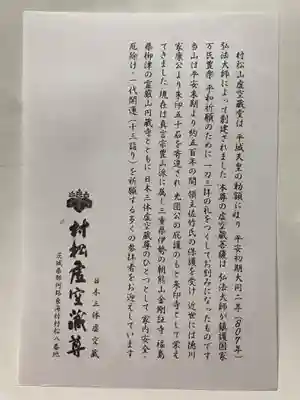 村松山虚空蔵堂は 平城天皇の勅願により 平安初期大同二年(807年)
弘法大師によって創建されました 本尊の虚空蔵菩薩は 弘法大師が鎮護国家
万民豊楽 平和祈願のために 一刀三拝の礼をつくしてお刻みになったものです
当山は 平安末期より約五百年の間 領主佐竹氏の保護を受け 近世には徳川
家康公より朱印五十石を寄進され 光圀公の庇護のもと朱印寺として栄え
てきました 現在は真言宗豊山派に属し三重県伊勢の朝熊山金剛証寺 福島
県柳津の霊巌山円蔵寺とともに 日本三体虚空蔵尊のひとつとして 家内安全・
厄除け・一代開運(十三詣り)を祈願する多くの参拝者をお迎えしています
日本三体虚空蔵
村松虚空蔵尊
茨城県那珂郡東海村村松八番地